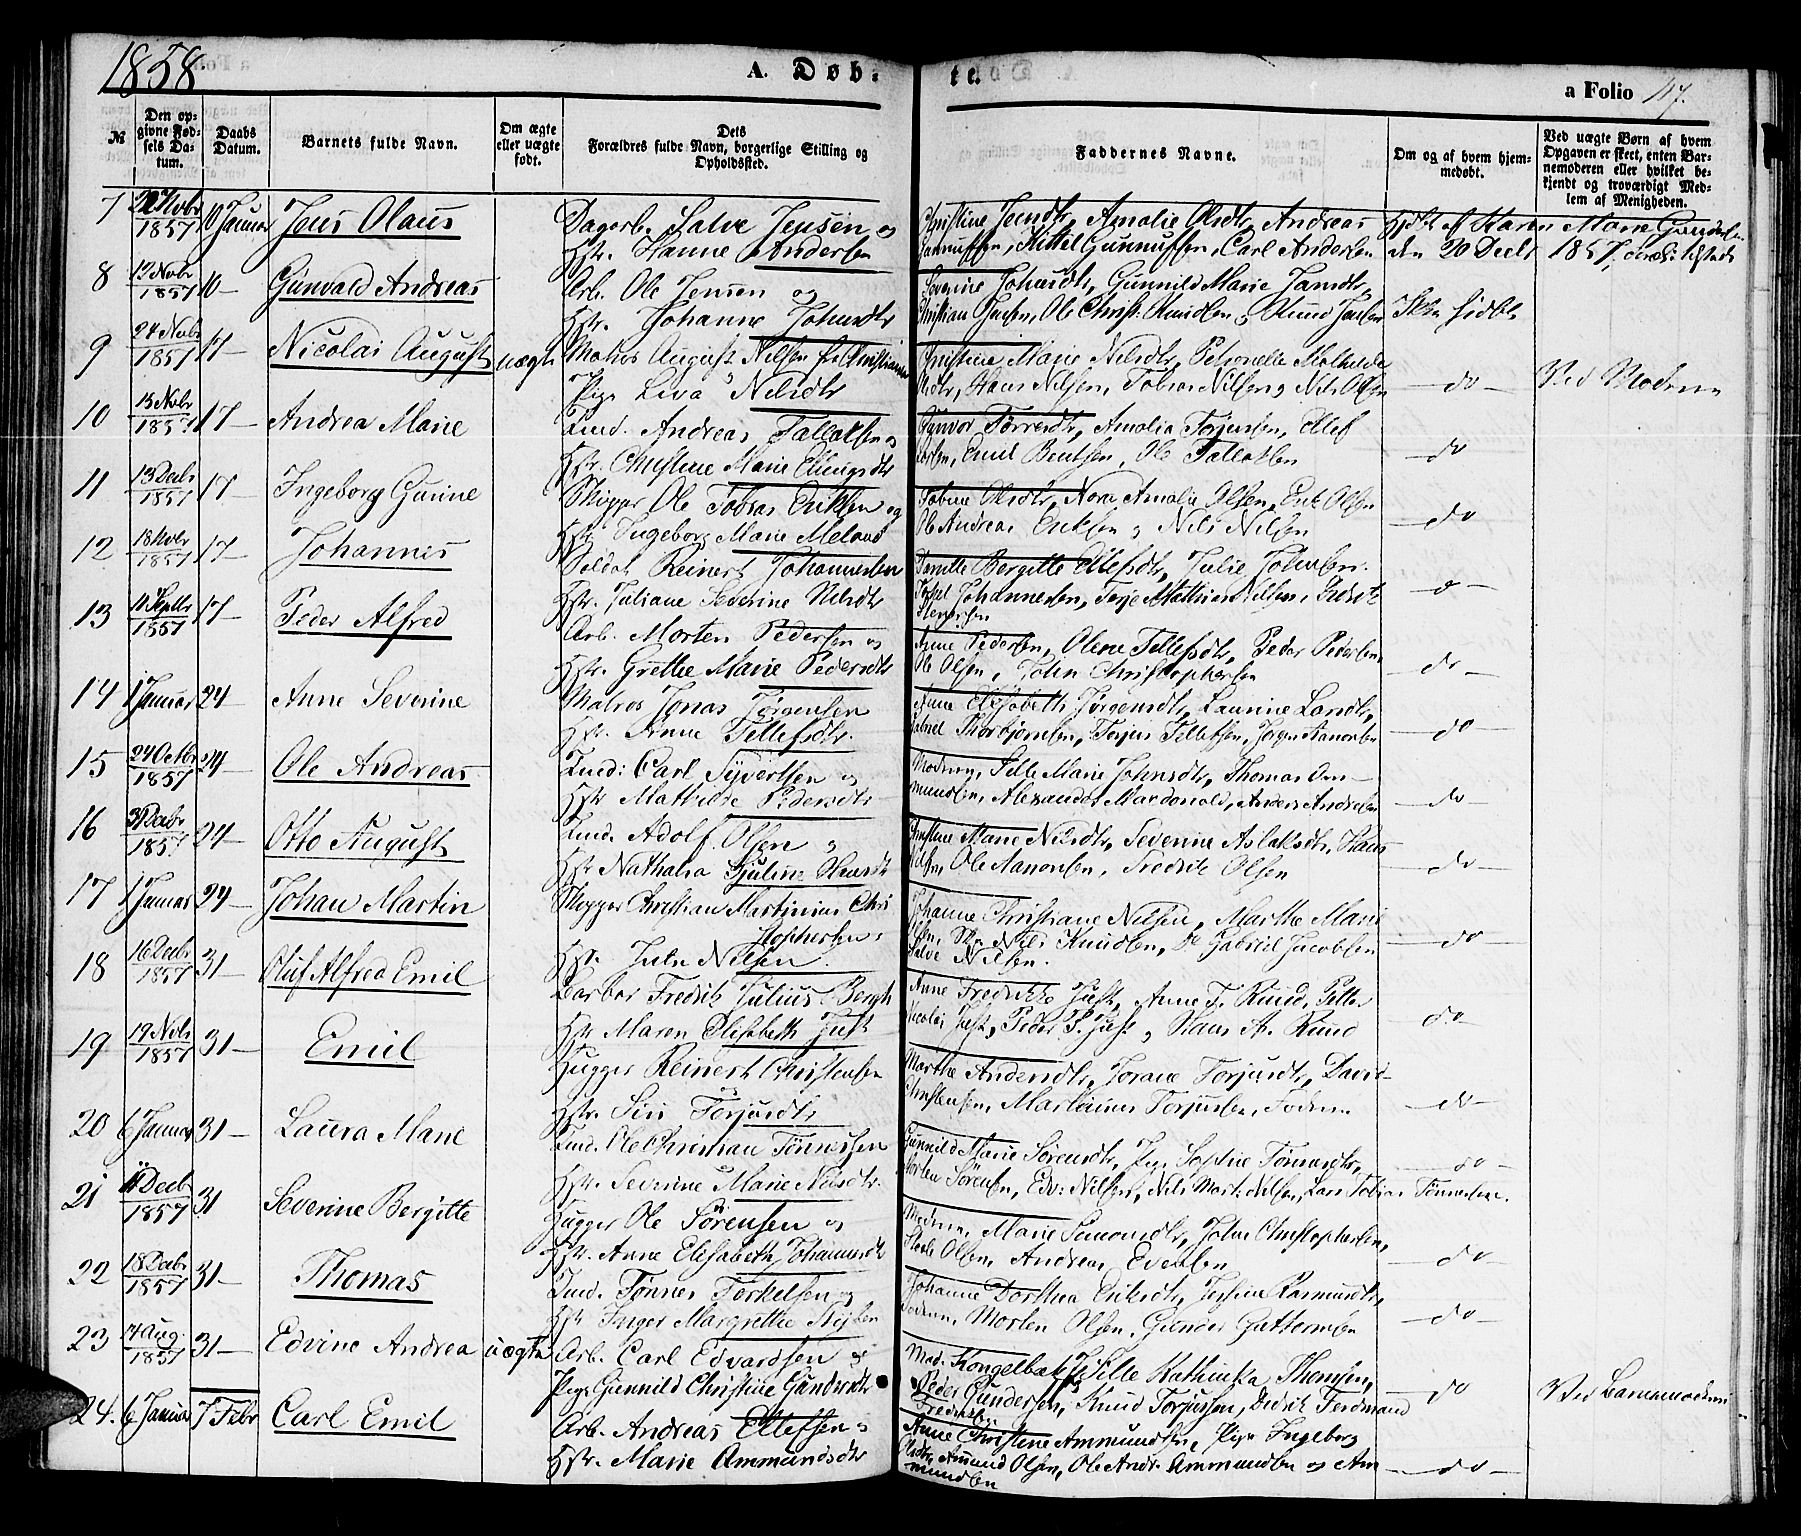 1858
A. Døb-
te.
a Folio 47.
№
Den op-
givne Fød-
sels Da-
tum.
Daabs
Datum.
Barnets fulde Navn.
Om ægte
eller uægte
født.
Dets
Forældres fulde Navn, borgerlige Stilling og
Opholdssted.
Faddernes Navne.
Om og af hvem hjem-
medøbt.
Ved uægte Børn af hvem
Opgaven er skeet, enten Bar-
nemoderen eller hvilket be-
kjendt og troværdigt Med-
lem af Menigheden.
7 22 Novbr 1857 10 Januar Jens Olaus
Dagarb. Salve Jensen og
Hstr. Hanne Andersen
Christine Jensdtr, Amalie Olsdtr, Andreas
Gunnufsen, Kittel Gunnufsen, Carl Andersen
Hjdbt af Karen Marie
den 20 Decbr 1857,
8 12 Novbr 1857 10 — Gunvald Andreas
Arb. Ole Jensen og
Hstr. Johanne Johnsdtr
Severine Johnsdtr, Gunnild Marie Jansdtr,
Christian Jensen, Ole Christ. Knudsen og Knud Jensen
Ikke hjdbt
9 24 Novbr 1857 17 — Nicolai August uægte
Matros August Nilsen fra Christiania
Pige Liva Nilsdtr
Christine Marie Nilsdtr, Petronelle Mathilde
Nilsdtr, Hans Nilsen, Tobias Nilsen og Nils Olsen
— do —
Ved Moderen
10 15 Novbr 1857 17 — Andrea Marie
Tmd. Andreas Tallaksen og
Hstr. Christine Marie Ellingsdtr
Gunvor Torersdtr, Amalia Torjusen, Ellef
Larsen, Emil Bentsen, Ole Tallaksen
do
11 13 Decbr 1857 17 — Ingeborg Gurine
Skipper Ole Tobias Eriksen og
Hstr. Ingeborg Marie Meland
Tobine Olsdtr, Nora Amalia Olsen, Erik Olsen
Ole Andreas Eriksen og Nils Nilsen
do
12 18 Novbr 1857 17 — Johannes
Soldat Reinert Johannesen
Hstr. Juliane Severine Nilsdtr
Pernille Bergitte Ellefsdtr, Julie Johnsen
Johannesen, Terje Mathias Nilsen,
do
13 11 Septbr 1857 17 — Peder Alfred
Arb. Morten Pedersen og
Hstr. Grethe Marie Pedersdtr
Anne Pedersen, Olene Tellefsdtr, Peder Pedersen,
Ole Olsen, John Christophersen
do —
14 1 Januar 24 — Anne Severine
Matros Jonas Jørgensen
Hstr. Anne Tellefsdtr.
Anne Elisabeth Jørgensdtr, Laurine Larsdtr,
Gabriel Thorbjørnsen, Torjus Tellefsen, Jørgen Aanonsen
do —
15 24 Octbr 1857 24 — Ole Andreas
Tmd: Carl Syvertsen og
Hstr Mathilde Pedersdtr
Moderen, Sille Marie Johnsdtr, Thomas Om-
mundsen, Alexander Macdonald, Anders Andersen
do —
16 3 Decbr 1857 24 — Otto August
Tmd. Adolf Olsen og
Hstr Nathalia Gjuline Hansdtr
Christine Marie Nilsdtr, Severine Aslaksdtr, Hans
Nilsen, Ole Aanonsen, Fredrik Olsen
do —
17 1 Januar 24 — Johan Martin
Skipper Christian Martinius Chri
stophersen
Hstr. Julie Nilsen
Johanne Christiane Nilsen, Marthe Marie
Nilsen, Sk. Nils Knudsen, Do Gabriel Jacobsen
Salve Nilsen.
— do —
18 16 Decbr 1857 31 — Oluf Alfred Emil
Barber Fredrik Julius Bergh
Hstr Maren Elisabeth Juft
Anne Fredrikke Juft, Anne T. Ruud, Petter
Nicolai Juft, Peder P. Juft og Hans A. Ruud
do
19 19 Novbr 1857 31 — Emil
Hugger Reinert Christensen
Hstr. Siri Torjusdtr
Marthe Andersdtr, Torane Torjusdtr, David
Christensen, Marthinus Torjusen, Faderen
— do —
20 6 Januar 31 — Laura Marie
Tmd. Ole Christian Tønnessen
Hstr. Severine Marie Nilsdtr.
Gunnild Marie Sørensdtr, Pige Sophie Tønnesdtr,
Morten Sørensen, Edv: Nilsen, Nils Mart: Nilsen, Lars Tobias Tønnesen.
do —
21 11 Decb 1857 31 Severine Bergitte
Hugger Ole Sørensen og
Hstr. Anne Elisabeth Johannesdtr
Moderen, Marie Simonsdtr, John Christophersen,
Olsen, Andreas Evensen
do —
22 18 Decbr 1857 31 — Thomas
Tmd. Tønnes Terkelsen og
Hstr Inger Margrethe
Johanne Dorthea Eriksdtr, Josefine Rasmusdtr,
Faderen, Morten Olsen, Gunder Guttormsen
do —
23 14 Aug. 1857 31 — Edvine Andrea uægte
Arb. Carl Edvardsen og
Pige Gunnild Christine Gundersdtr
Mad. Kongelbak, Jfr. Sille Kathinka Thomsen,
Peder Gundersen, Knud Torjussen, Dedrik Ferdinand
Fredriksen
do
Ved Barnemoderen
24. 6 Januar 7 Febr Carl Emil
Arb. Andreas Ellefsen og
Hstr. Marie Ammundsdtr
Anne Christine Ammundsen, Pige Ingeborg
Olsdtr, Amund Olsen, Ole Andr. Ammundsen og Am-
mundsen
— do —